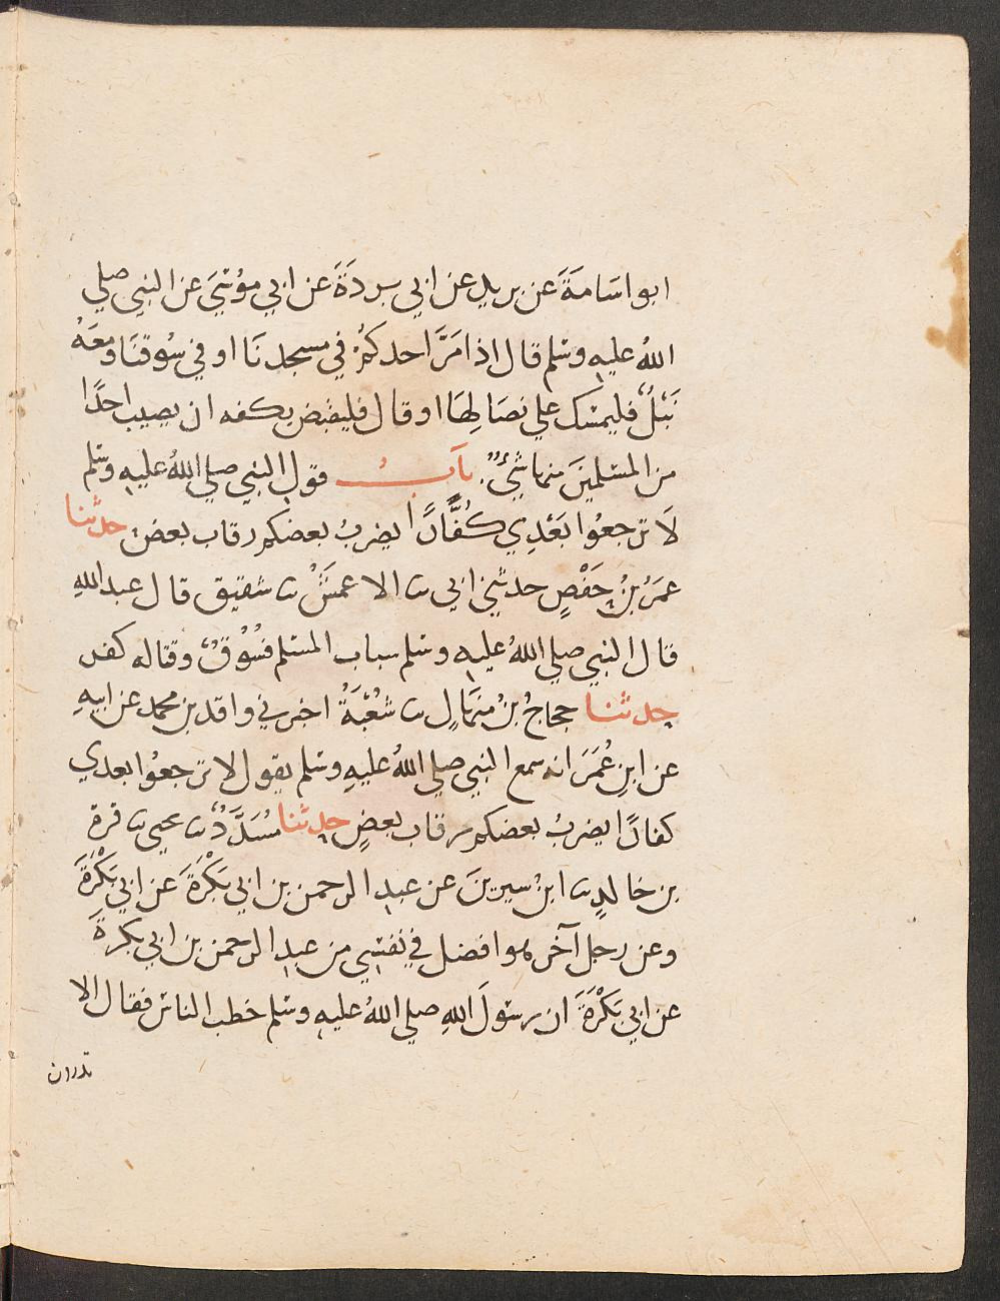 ابو اسَامَةَ عن بريد عن ابي بردَةَ عن ابي موُسَيَ عن النبي صلي
اللهُ عليهِ وسَلم قال اذا مَرَّ احدكمُ في مسجدنَا او في سُوقنَا ومعَهُ
نَبْلٌ فليمسَك علي نصَالِهَا او قال فليقبض بكفه ان يصيب احدًا
من المسَلمينَ منها شيءٌ. بابُ قول النبي صلي اللهُ عليهِ وسَلم
لَا ترجعوُا بَعْدِي كُفَّارًا يضربُ بعضكم رقاب بعض حدثنا
عمَرُ بنُ حَفْصٍ حدثني ابي ثنا الاعمَشُ ثنا شقيق قال عبد اللهِ
قال النبي صلي اللهُ عليهِ وسَلم سباب المسَلم فسُوُقٌ وقتاله كفر
حدثنا حجاجُ بنُ مِنهَالٍ ثنا شعُبَةُ اخبرني واقد بن محمد عن ابيهِ
عن ابنِ عُمَرَ انه سمع النبي صلي اللهُ عليهِ وسَلم يقول لا ترجعوُا بعدي
كفارًا يضربُ بعضكم رقاب بعضٍ حدثنا مُسَدَّدٌ ثنا يحيي ثنا قرة
بن خالدٍ ثنا ابنُ سيرينَ عن عبدِ الرحمن بن ابي بَكْرَةَ عن ابي بَكْرَةَ
وعن رجل آخر هو افضل في نفسَي من عبدِ الرحمن بن ابي بكرةَ
عن ابي بَكْرَةَ ان رسَولَ اللهِ صلي اللهُ عليهِ وسَلم خطب الناسَ فقال الا
تدرون